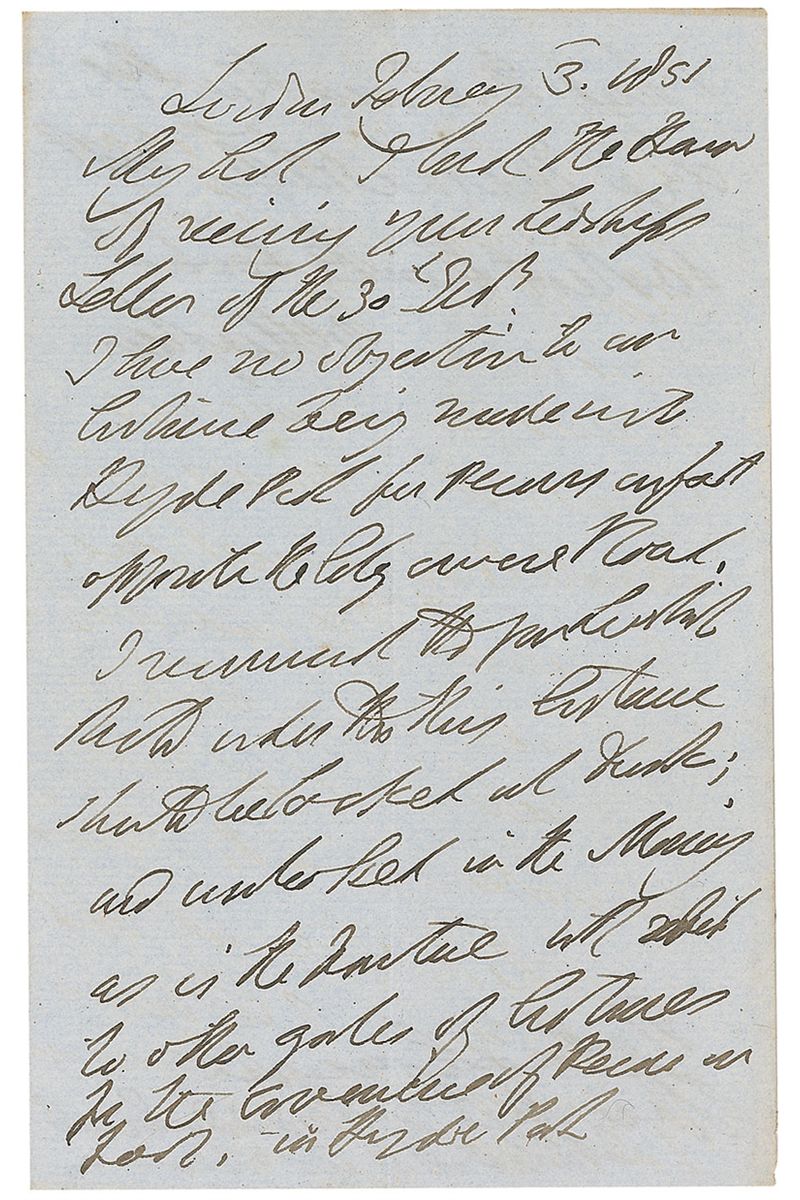 London February 3. 1851
My Lord I had the Honor
of receiving your Lordship's
Letter of the 30th
I have no objection to an
Entrance being made into
Hyde Park for Persons on foot
opposite the Edgware Road.
I recommend that your Lordship
should order that this Entrance
should be locked at Dusk;
and unlocked in the Morning
as is the Practice with
to other gates of Entrances
for the Convenience of Persons on
Foot, in Hyde Park